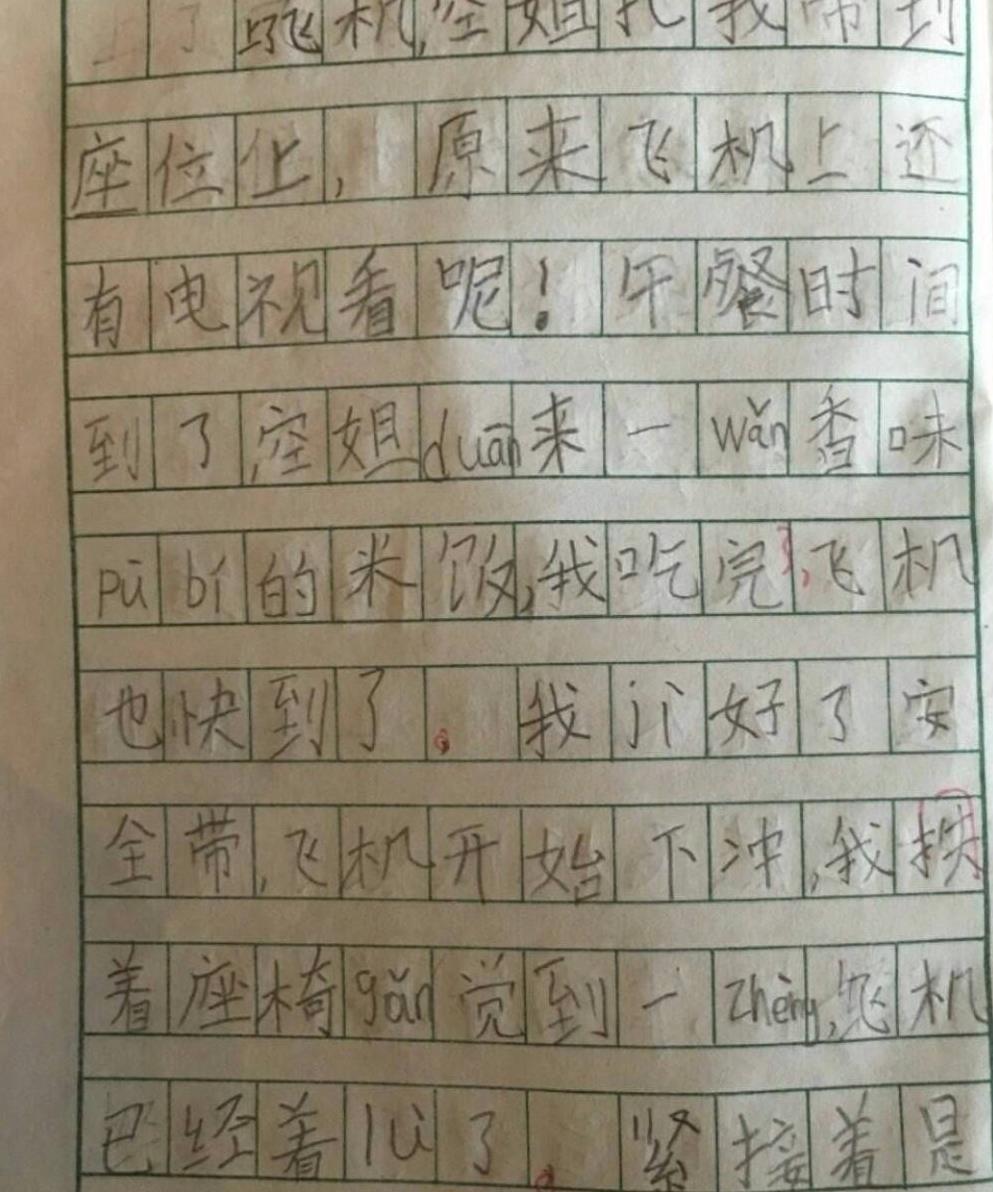 上了飞机,空姐把我带到
座位上,原来飞机上还
有电视看呢!午餐时间
到了,空姐duān来一wǎn香味
pū bí的米饭,我吃完了,飞机
也快到了。我jì好了安
全带,飞机开始下冲,我扶
着座椅gǎn觉到一zhèng,飞机
已经着lù了。紧接着是